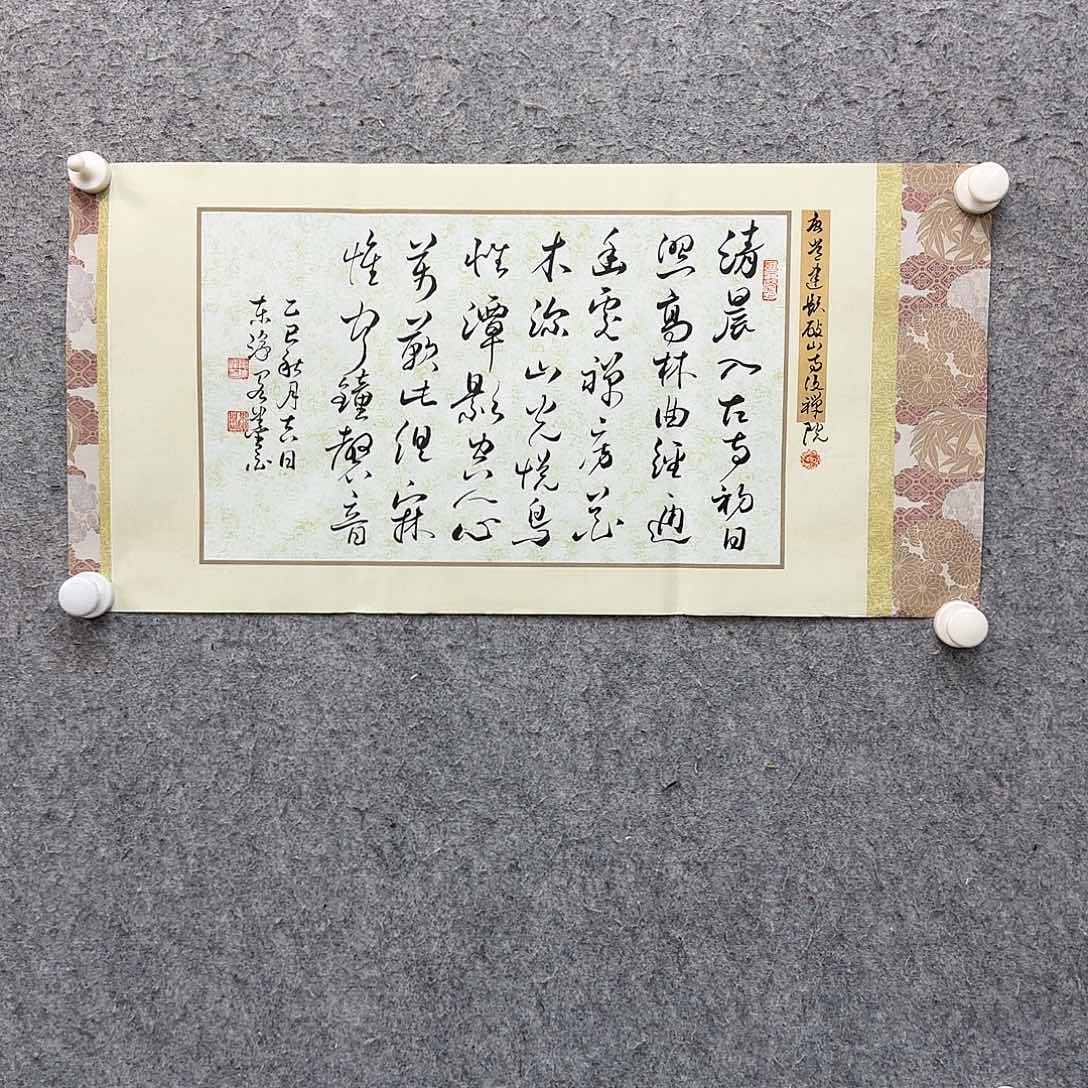 唐常建題破山寺後禪院
清晨入古寺初日
照高林曲徑通
幽處禪房花
木深山光悅鳥
性潭影空人心
萬籟此俱寂
惟聞鐘磬音
乙巳秋月吉日